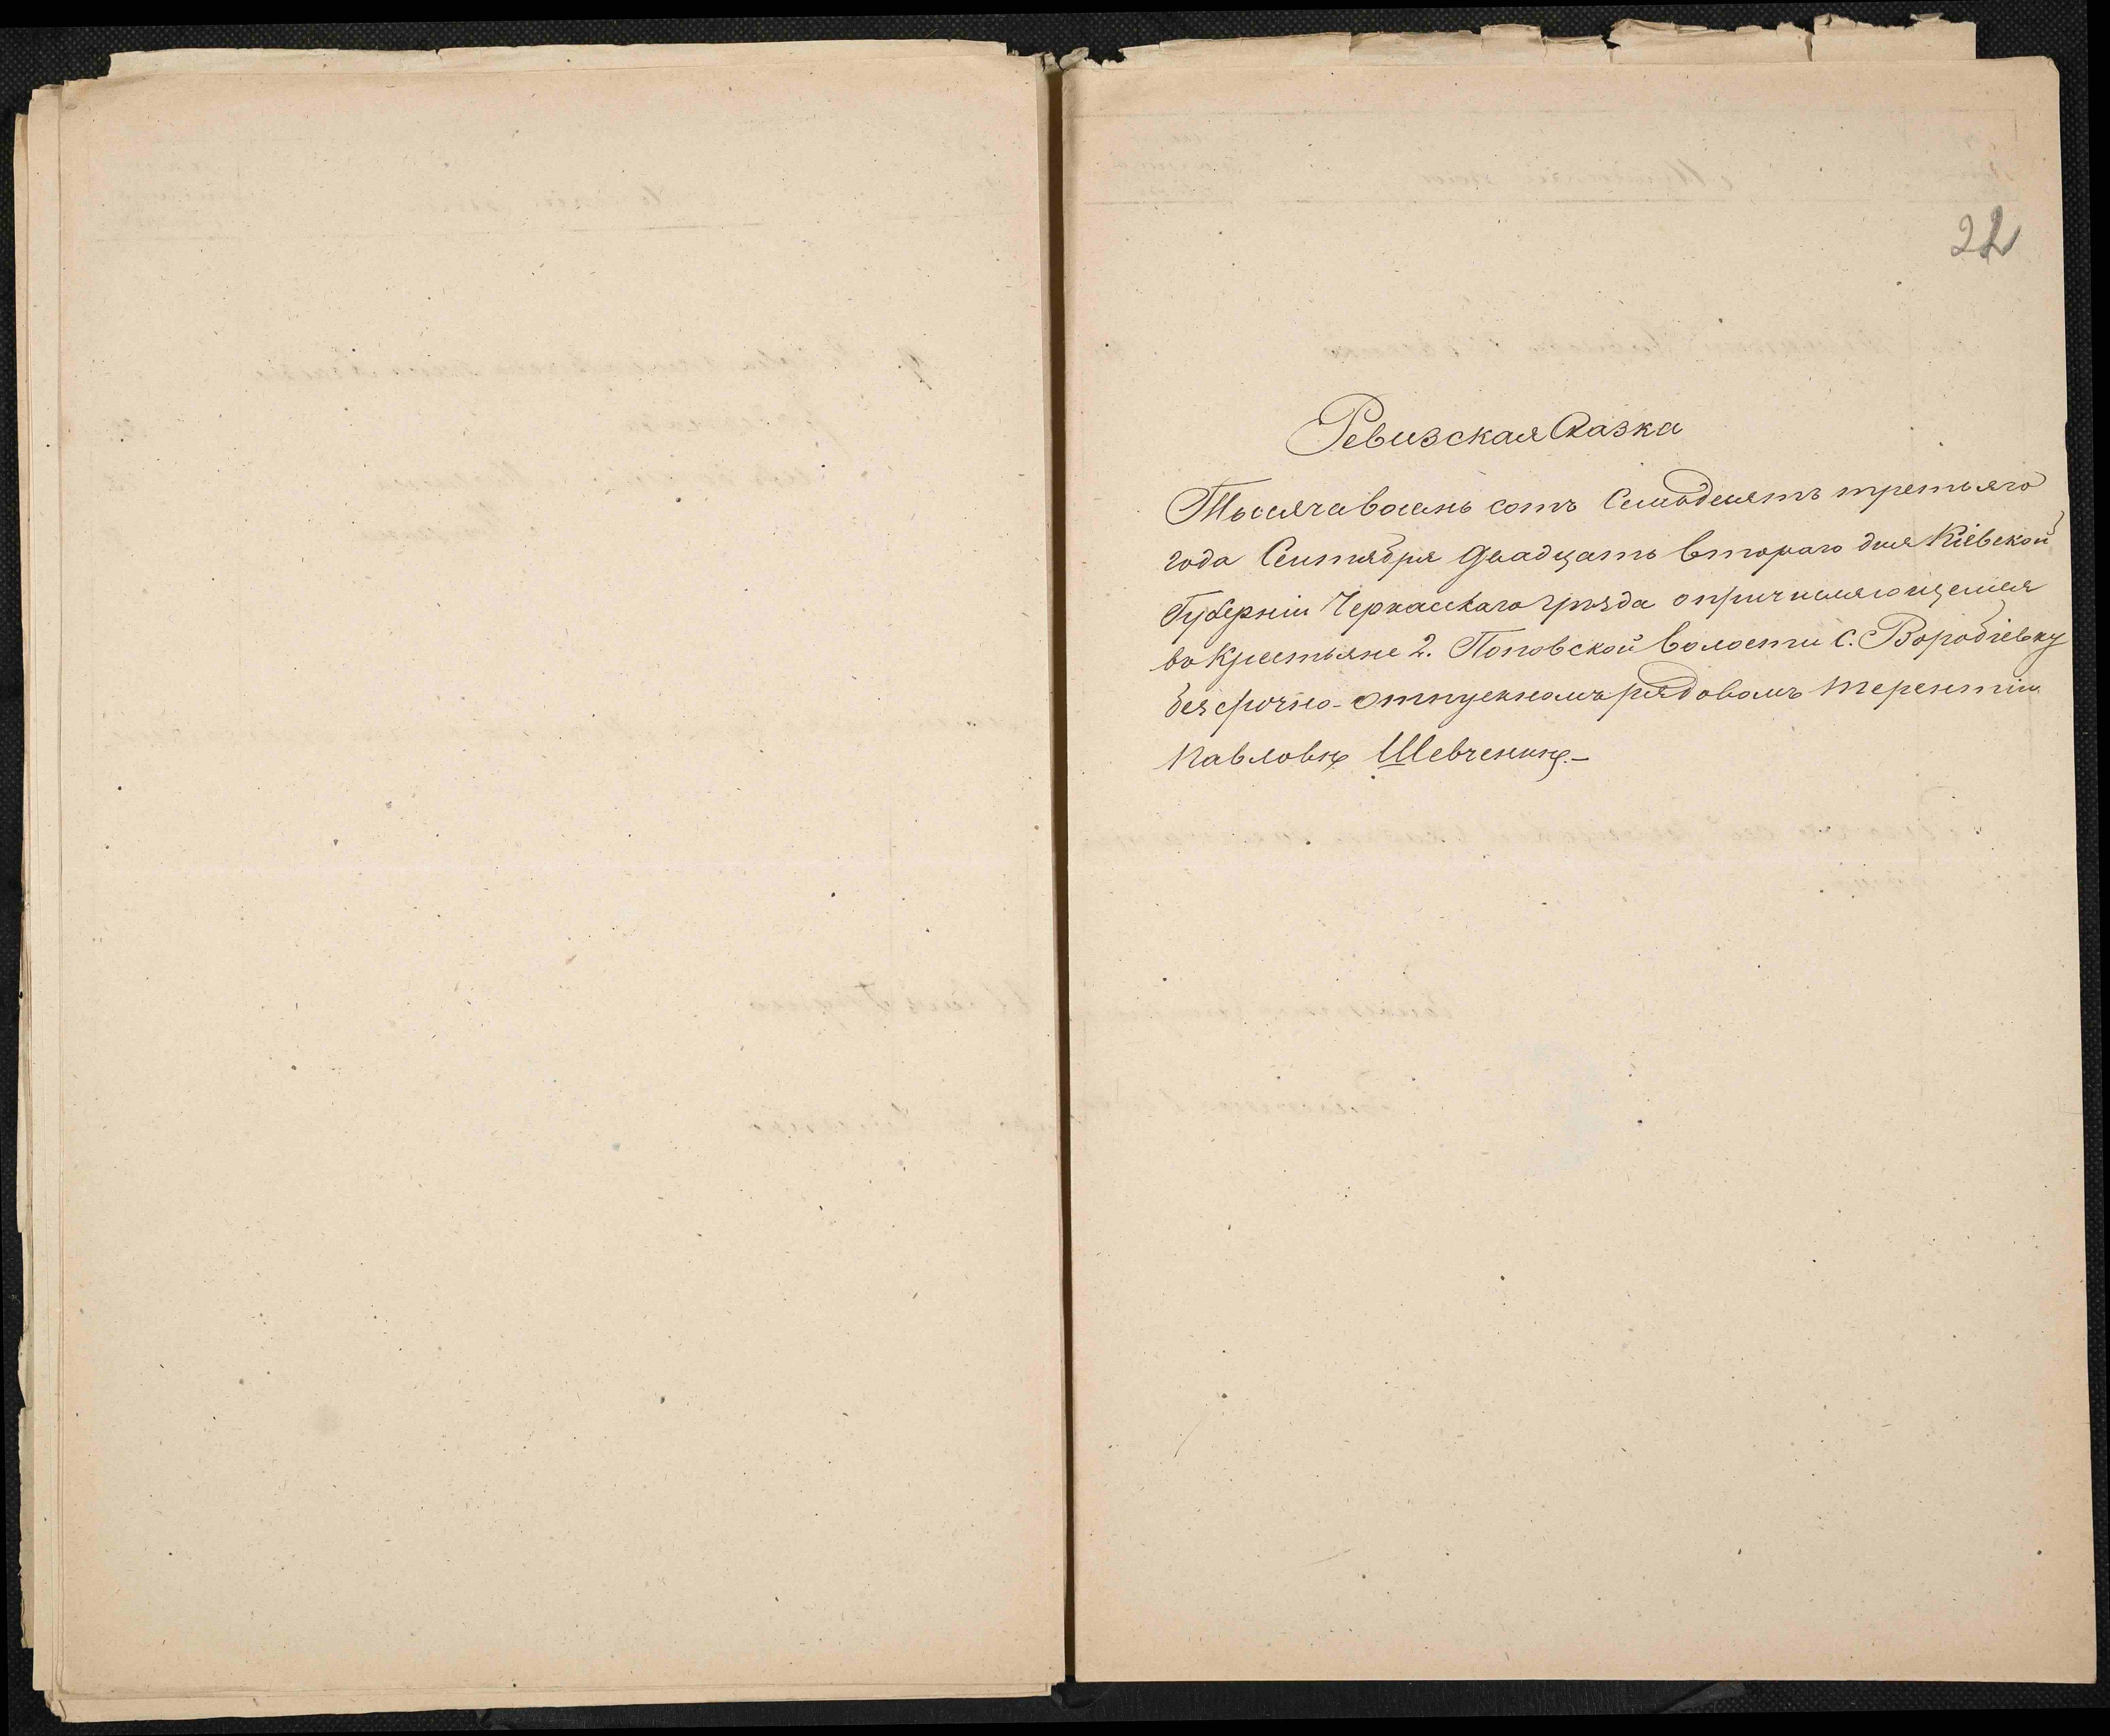 22
Ревизская Сказка
Тысяча восемь сотъ Семьдесятъ третьяго
года Сентября Двадцать втораго дня Кіевской
Губерніи Черкасскаго уѣзда о причисляющемся
въ Крестьяне 2. Поповской волости С. Воробіевку
безсрочно-отпускномъ рядовомъ Терентіи
Павловѣ Шевченкѣ.-